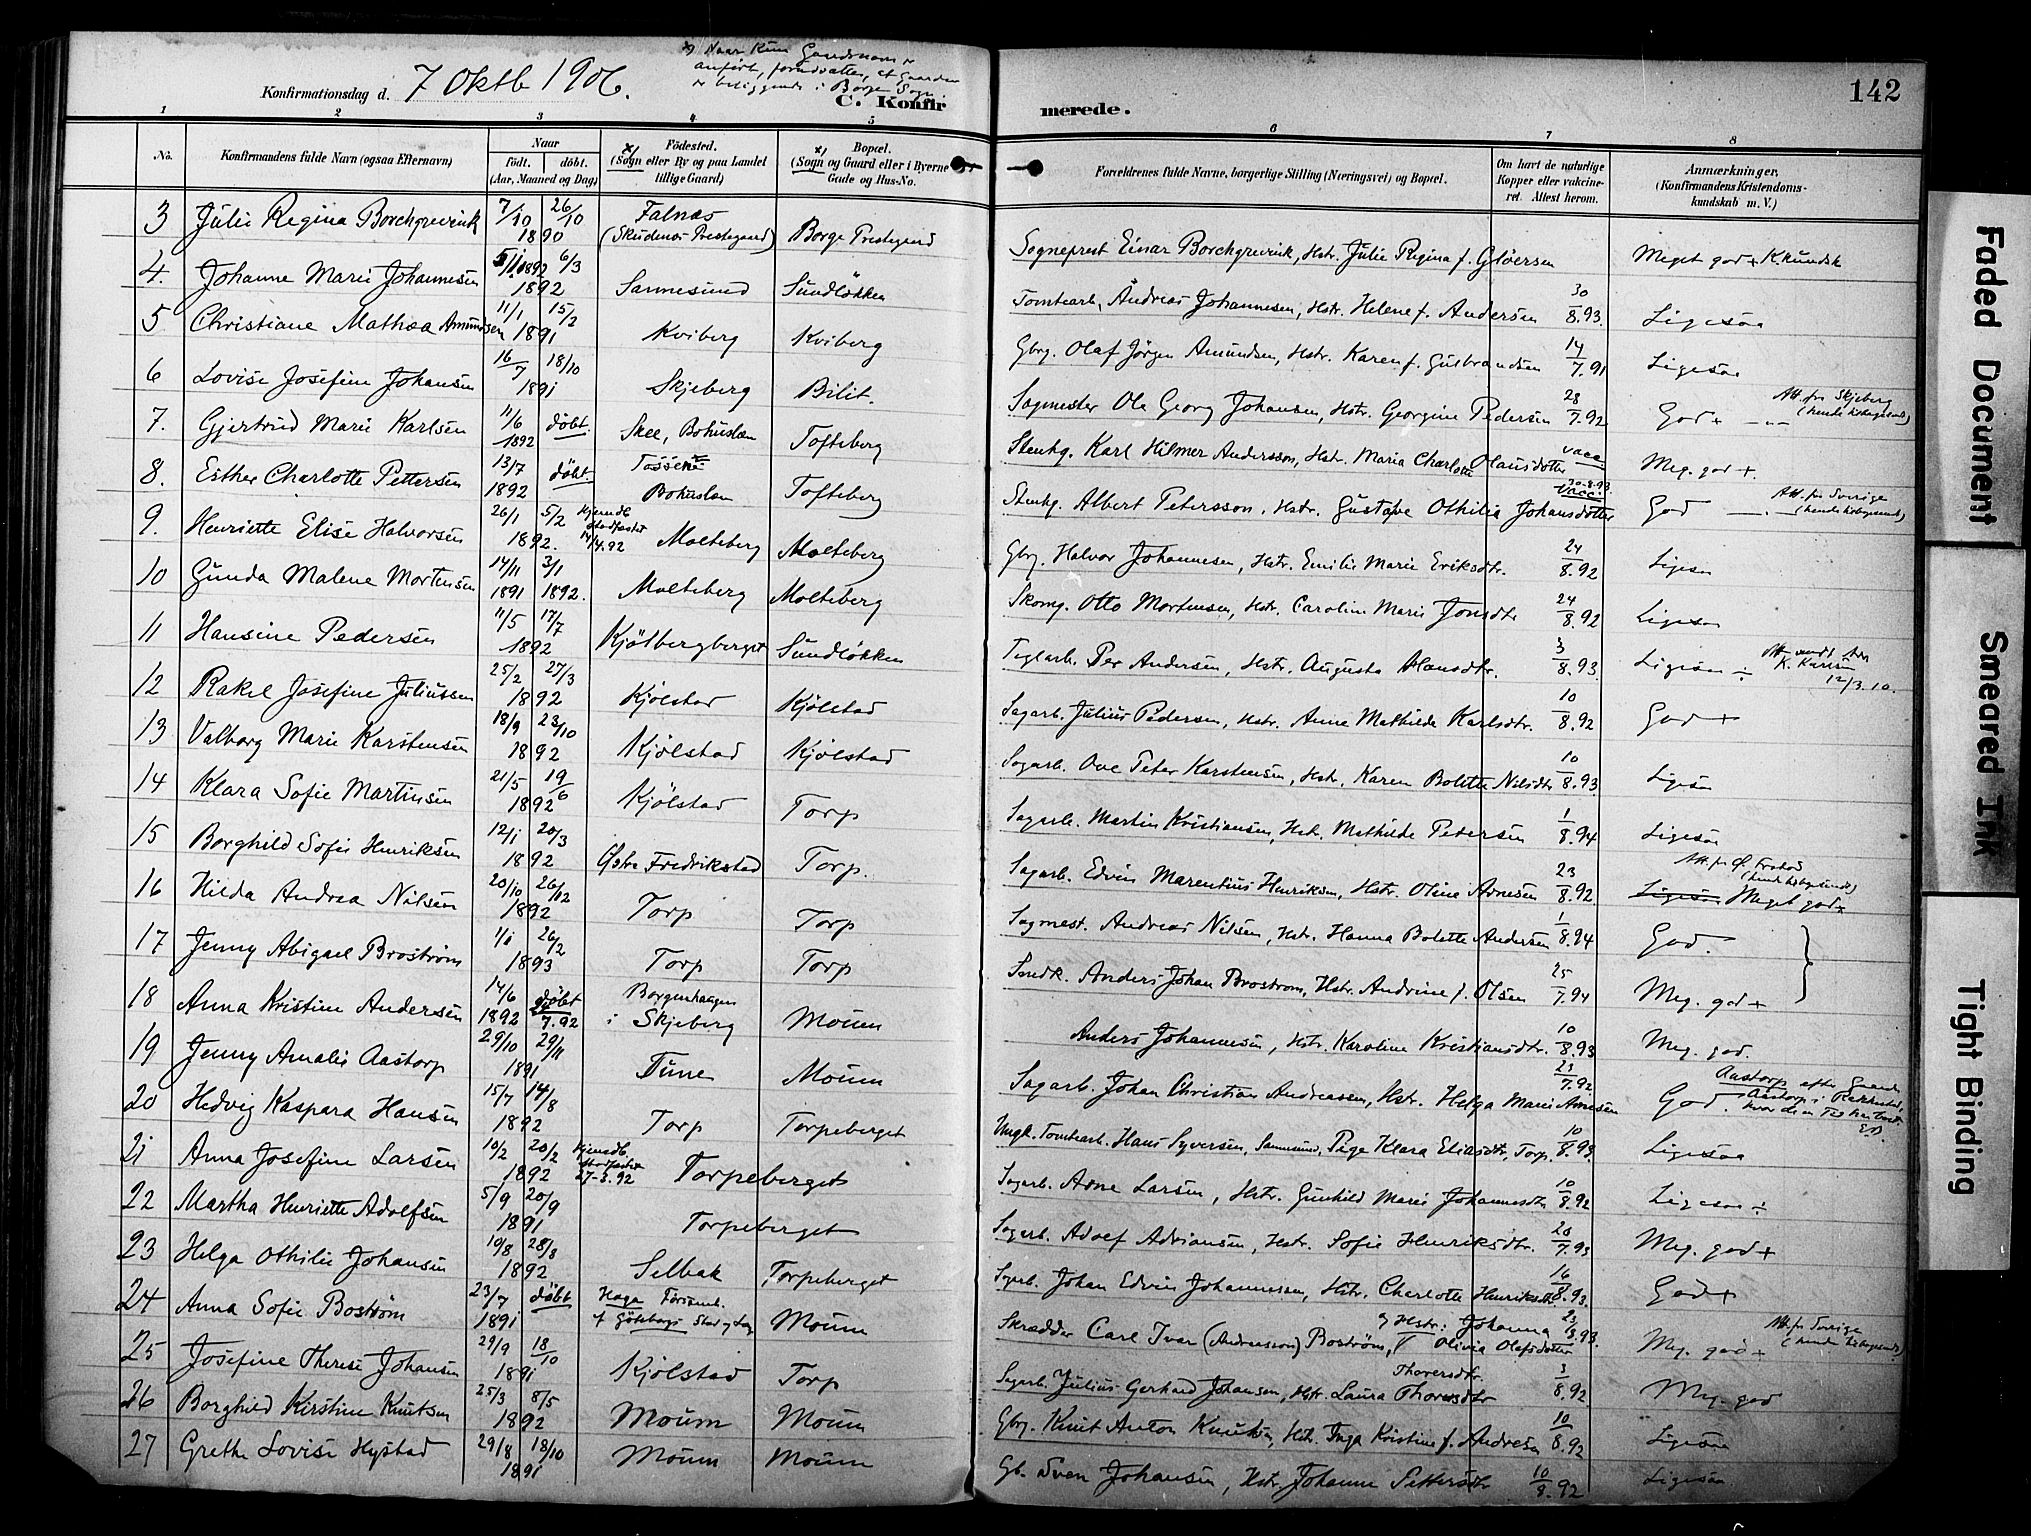 Konfirmationsdag d. 7 Oktb 1906.
x) Naar kun Gaardsnavn er
anført, forudsættes, at Gaarden
er beliggende i Borge Sogn.
C. Konfir
merede.
142
1 2 3 4 5 6 7 8
No.
Konfirmandens fulde Navn (ogsaa Efternavn)
Naar
födt. döbt.
(Aar, Maaned og Dag)
x) Födested.
(Sogn eller By og paa Landet
tillige Gaard)
x) Bopæl.
(Sogn og Gaard eller i Byerne
Gade og Hus-No.
Forældrenes fulde Navne, borgerlige Stilling (Næringsvei) og Bopæl.
Om havt de naturlige
Kopper eller vakcine-
ret. Attest herom.
Anmærkninger.
(Konfirmandens Kristendoms-
kundskab m. V.)
3 Julie Regina Borchgrevink 7/10 26/10 1890 Falnæs (Skudenes Prestegaard) Borge Prestegaard Sogneprest Einar Borchgrevink, Hstr. Julie Regina f. Gløersen Meget god + K.kundsk
4. Johanne Marie Johannesen 5/1 1892 6/3 1892 Sannesund Sundløkken Tomtearb. Andreas Johannesen, Hstr. Helene f. Andersen 30/8.93. Ligesaa
5 Christiane Mathea Amundsen 11/1 15/2 1891 Kviberg Kviberg Gbrg. Olaf Jörgen Amundsen, Hstr. Karen f. Gulbrandsen 14/7.91 Ligesaa
6 Lovise Josefine Johansen 16/7 18/10 1891 Skjeberg Bilit. Sagmester Ole Georg Johansen, Hstr. Georgine Pedersen 28/7.92 God + Att. fra Skjeberg
7. Gjertrud Marie Karlsen 11/6 1892 döbt. Skee, Bohuslen Tofteberg Stenhg. Karl Hilmer Andersson, Hstr. Maria Charlotte Olausdotter vacc. Meg. god +.
8. Esther Charlotte Pettersen 13/7 1892 döbt. Tossene Bohuslen Tofteberg Stenhg. Albert Petersson, Hstr. Gustave Othilia Johansdotter 30.8.93 Vacc. God Att. fra Sverige
9. Henriette Elise Halvorsen 26/1 5/2 1892. Hjemdb. Stadfæstet 14/4.92 Molteberg Molteberg Gbrg. Halvor Johannesen, Hstr. Emilie Marie Eriksdtr. 24/8.92 Ligesaa
10 Gunda Malene Mortensen 14/11 1891 3/1 1892. Molteberg Molteberg Skomg. Otto Mortensen, Hstr. Caroline Marie Jonsdtr 24/8.92 Ligesaa
11 Hansine Pedersen 11/5 17/7 1892 Kjölbergberget Sundløkken Teglarb. Per Andersen, Hstr. Augusta Hansdtr. 3/8.93. Ligesaa ÷ Att. sendt K. Karlsen 12/3.10.
12 Rakel Josefine Juliussen 25/2 27/3 1892 Kjölstad Kjölstad Sagarb. Julius Pedersen, Hstr. Anne Mathilde Karlsdtr. 10/8.92 God +
13 Valborg Marie Karstensen 18/9 23/10 1892 Kjölstad Kjölstad Sagarb. Ove Peter Karstensen, Hstr. Karen Bolette Nilsdtr 10/8.93 Ligesaa
14 Klara Sofie Martinsen 21/5 19/6 1892 Kjölstad Torp Sagarb. Martin Kristiansen, Hstr. Mathilde Pedersen 1/8.94 Ligesaa
15 Borghild Sofie Henriksen 12/1 20/3 1892 Østre Fredrikstad Torp. Sagarb. Edvin Marentius Henriksen, Hstr. Oline Arnesen 23/8.92 Ligesaa Meget god + Att. fr. Ø. Fredrikstad
16 Hilda Andrea Nilsen 20/10 26/12 1892 Torp Torp Sagmest. Andreas Nilsen, Hstr. Hanna Bolette Andersen 1/8.94 God.
17 Jenny Abigael Broström 1/1 26/2 1893 Torp Torp Smedk. Anders Johan Broström, Hstr. Andrine f. Olsen 25/7.94 Meg. god +
18 Anna Kristine Andersen 14/6 1892 döbt 7.92 Borgenhaugen i Skjeberg Moum Anders Johannesen, Hstr. Karoline Kristiansdtr. 10/8.93 Meg. god.
19 Jenny Amalie Aastorp 29/10 29/11 1891 Tune Moum Sagarb. Johan Christian Andreassen, Hstr. Helga Marie Arnesen 23/7.92 God. Aastorp efter Gaarden Aastorp i Rakkestad,
20 Hedvig Kaspara Hansen 15/7 14/8 1892 Torp Torpeberget Ungk. Tomtearb. Hans Syversen, Sannesund, Pige Klara Eliasdtr, Torp. 10/8.93 Ligesaa
21 Anna Josefine Larsen 10/2 20/2 1892 Hjemdb. Stadfæstet 27-3.92 Torpeberget Sagarb. Arne Larsen, Hstr. Gunhild Marie Johannesdtr 10/8.92 Ligesaa ÷
22 Martha Henriette Adolfsen 5/9 20/9 1891 Torpeberget Sagarb. Adolf Adriansen, Hstr. Sofie Henriksdtr. 20/7.93 Meg. god +
23 Helga Othilie Johansen 19/8 28/8 1892 Selbak Torpeberget Sagarb. Johan Edvin Johannesen, Hstr. Charlotte Henriksdtr 16/8.93. God +
24 Anna Sofie Boström 23/7 1891 döbt Haga Församl. af Göteborgs Stad Moum Skrædder Carl Ivar (Andersson) Boström, og Hstr: Johanna Olivia Olafsdotter 23/8.93. Meg. god + Att. fr. Sverige
25 Josefine Therese Johansen 29/9 18/10 1891 Kjölstad Torp Sagarb. Julius Gerhard Johansen, Hstr. Laura Thoresdtr Thoversdtr. 3/8.92 Meg. god
26 Borghild Kirstine Knutsen 25/3 8/5 1892 Moum Moum Gbrg. Knut Anton Knutsen, Hstr. Inga Kristine f. Andresen 10/8.92 Ligesaa
27 Grethe Lovise Hystad 29/8 18/10 1891 Moum Moum Gb. Sven Johansen, Hstr. Johanne Pettersdtr 10/8.92 Ligesaa
Faded Document
Smeared Ink
Tight Binding